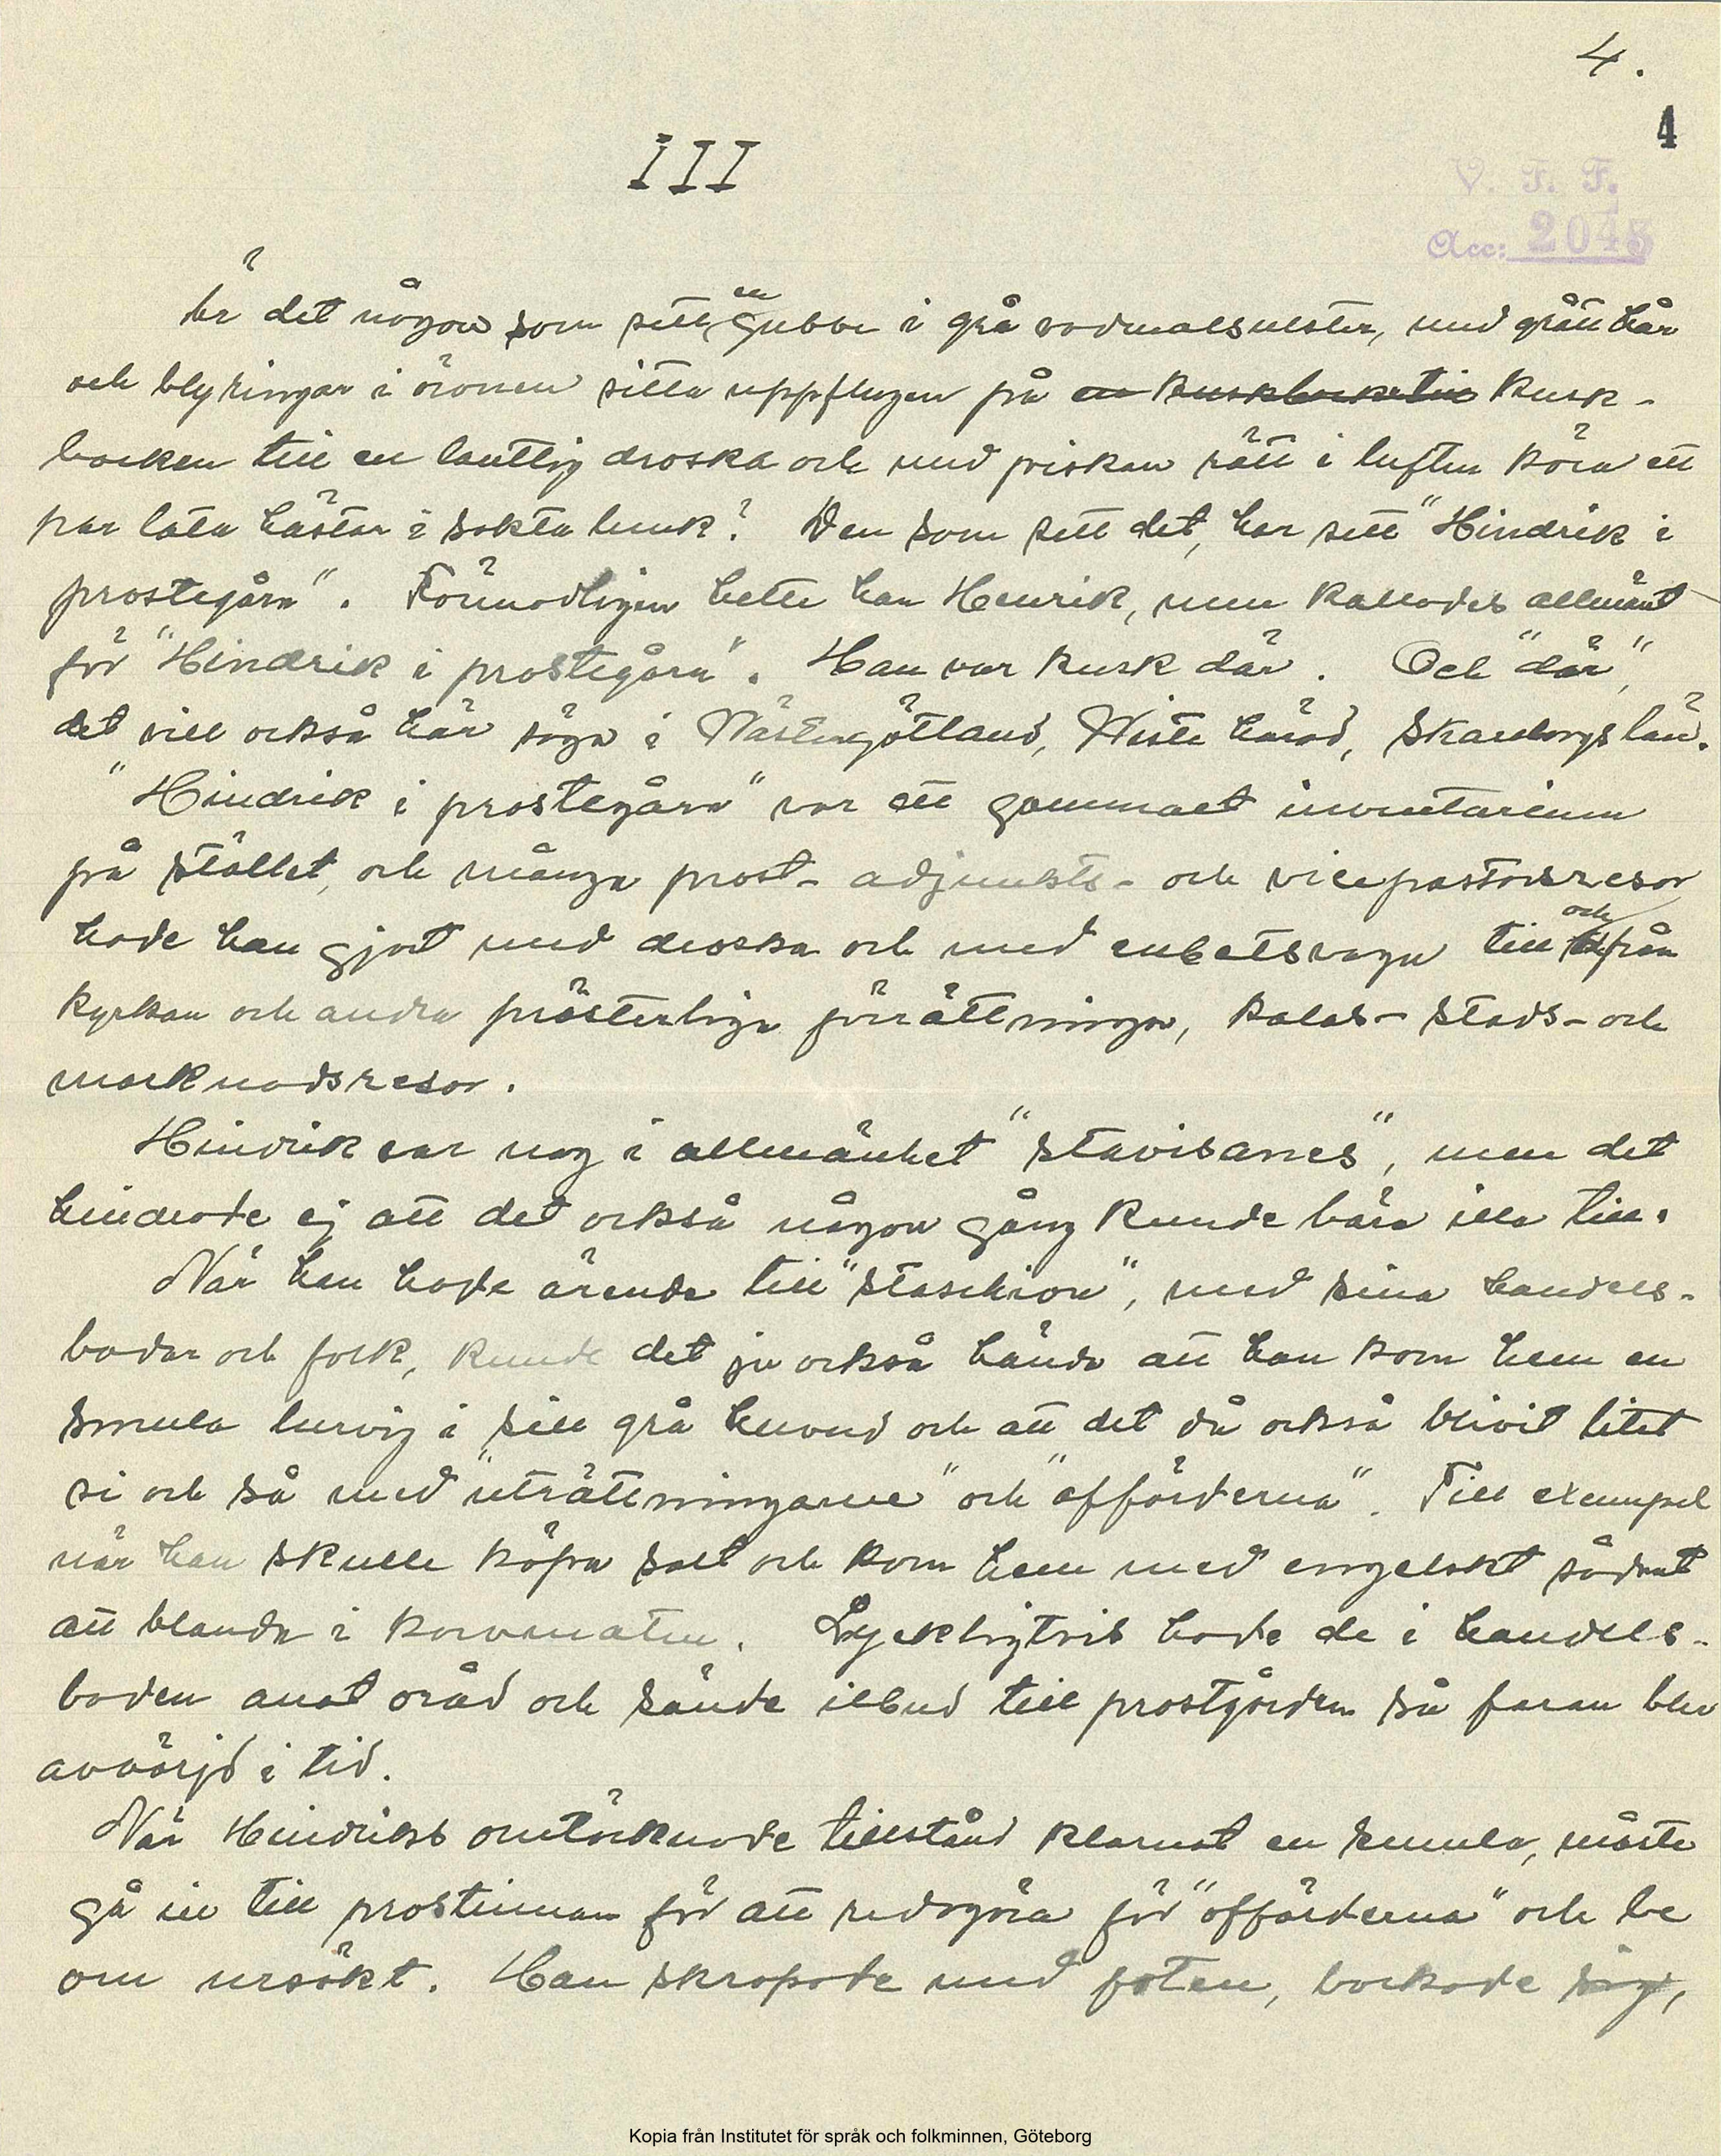 4.
4
III
V. F. F.
Acc: 2045
Är det någon som sett en gubbe i grå vadmalsulster, med grått hår
och blyringar i öronen sitta uppflugen på en kuskbock till kusk-
bocken till en lantlig droska och med piskan rätt i luften köra ett
par lata hästar i sakta lunk? Den som sett det, har sett "Hindrik i
prostegårn". Förmodligen hette han Henrik, men kallades allmänt
för "Hindrik i prostegårn". Han var kusk där. Och "där",
det vill också här säga i Västergötland, Wiste härad, Skaraborgs län.
"Hindrik i prostegårn" var ett gammalt inventarium
på stället, och många prost- adjunkts- och vicepastorsresor
hade han gjort med droska och med enbetsvagn till och från
kyrkan och andra prästerliga förrättningar, kalas- stads- och
marknadsresor.
Hindrik var nog i allmänhet "stavisanes", men det
hindrade ej att det också någon gång kunde bära illa till.
När han hade ärende till "staschion", med sina handels-
bodar och folk, kunde det ju också hända att han kom hem en
smula lurvig i sitt grå huvud och att det då också blivit litet
si och så med "uträttningarne" och "affärderna". Till exempel
när han skulle köpa salt och kom hem med engelskt sådant
att blanda i korvmaten. Lyckligtvis hade de i handels-
boden anat oråd och sände ilbud till prostgården så faran blev
avvärjd i tid.
När Hindriks omtöcknade tillstånd klarnat en smula, måste
gå in till prostinnan för att redogöra för "affärderna" och be
om ursäkt. Han skrapade med foten, bockade sig,
Kopia från Institutet för språk och folkminnen, Göteborg